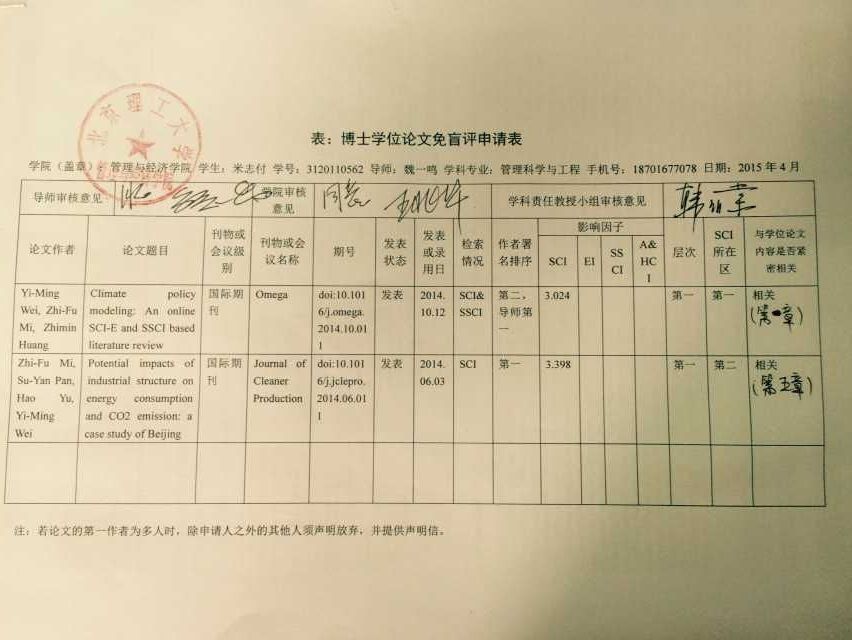 北京理工大学
表：博士学位论文免盲评申请表
学院（盖章）：管理与经济学院 学生：米志付 学号：3120110562 导师：魏一鸣 学科专业：管理科学与工程 手机号：18701677078 日期：2015 年 4 月
导师审核意见
学院审核
意见
同意
学科责任教授小组审核意见
论文作者
论文题目
刊物或
会议级
别
刊物或会
议名称
期号
发表
状态
发表
或录
用日
检索
情况
作者署
名排序
影响因子
SCI
EI
SS
CI
A&
HC
I
层次
SCI
所在
区
与学位论文
内容是否紧
密相关
Yi-Ming
Wei, Zhi-Fu
Mi, Zhimin
Huang
Climate policy
modeling: An online
SCI-E and SSCI based
literature review
国际期
刊
Omega
doi:10.101
6/j.omega.
2014.10.01
1
发表
2014.
10.12
SCI&
SSCI
第二，
导师第
一
3.024
第一
第一
相关
(第一章)
Zhi-Fu Mi,
Su-Yan Pan,
Hao Yu,
Yi-Ming
Wei
Potential impacts of
industrial structure on
energy consumption
and CO2 emission: a
case study of Beijing
国际期
刊
Journal of
Cleaner
Production
doi:10.101
6/j.jclepro.
2014.06.01
1
发表
2014.
06.03
SCI
第一
3.398
第一
第二
相关
(第五章)
注：若论文的第一作者为多人时，除申请人之外的其他人须声明放弃，并提供声明信。